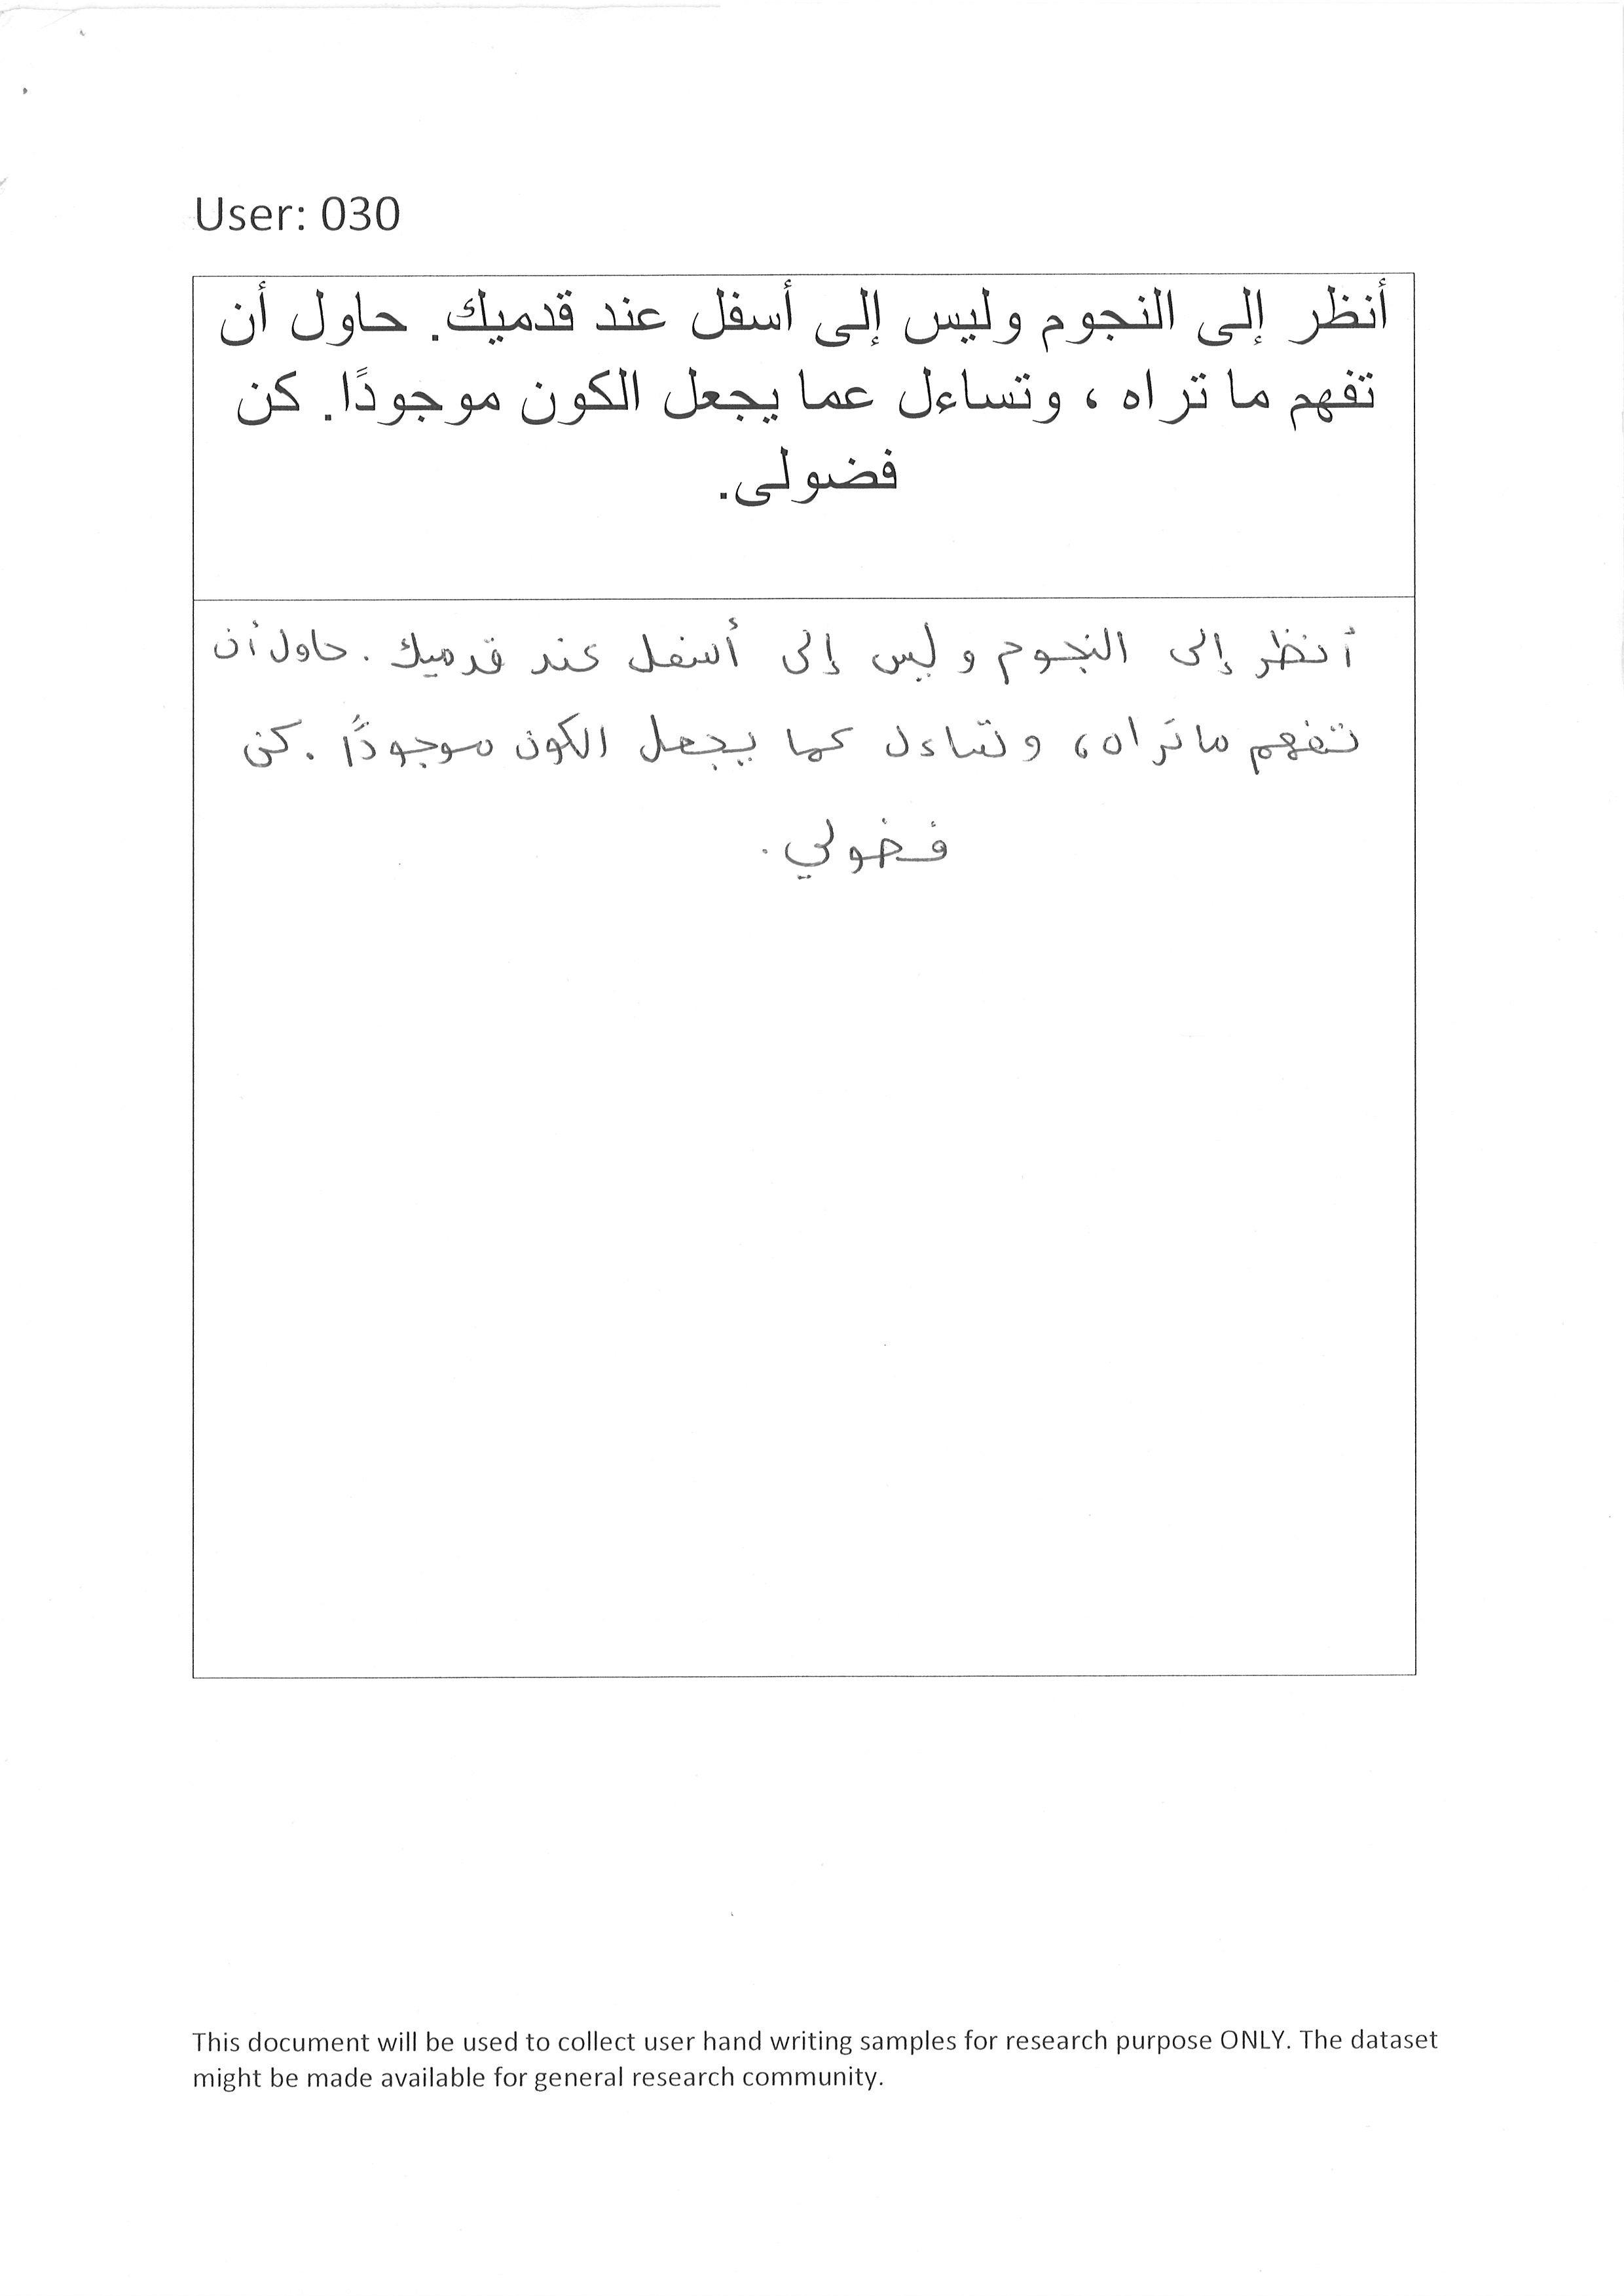 User: 030
أنظر إلى النجوم وليس إلى أسفل عند قدميك. حاول أن
تفهم ما تراه ، وتساءل عما يجعل الكون موجودًا. كن
فضولى.
أنظر إلى النجوم وليس إلى أسفل عند قدميك. حاول أن
تفهم ما تراه، وتساءل عما يجعل الكون موجودًا. كن
فضولي.
This document will be used to collect user hand writing samples for research purpose ONLY. The dataset
might be made available for general research community.